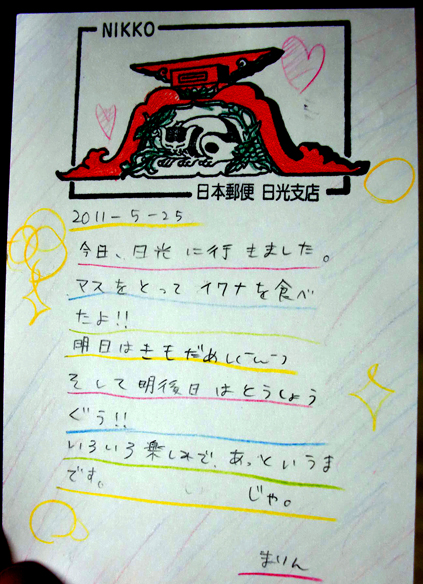 NIKKO
日本郵便 日光支店
2011-5-25
今日、日光に行きました。
マスをとってイワナを食べ
たよ!!
明日はきもだめし(-ん-)
そして明後日はとうしょう
ぐう!!
いろいろ楽しみで、あっというま
です。 じゃ。
まりん